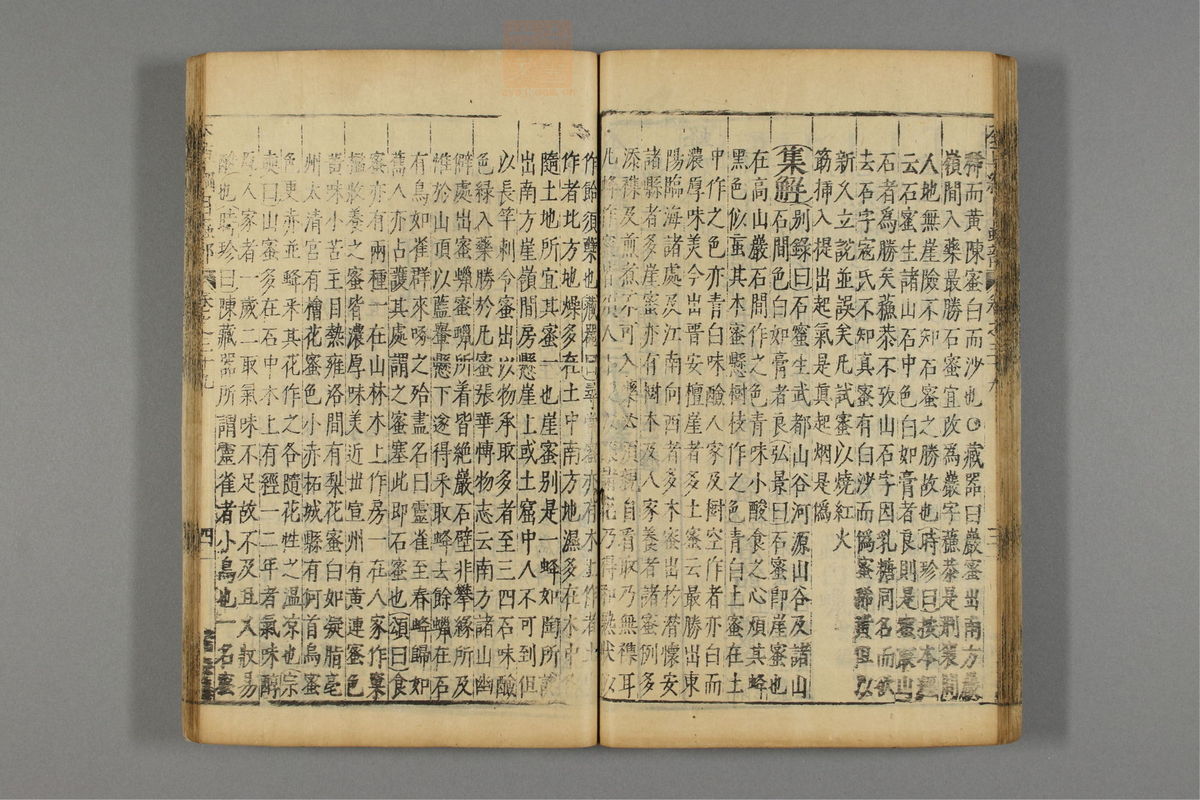 稀而黄陳蜜白而沙也○藏器曰巖蜜出南方巖
嶺間入藥最勝石蜜宜改為巖字蘇恭是荆襄間
人地無崖險不知石蜜之勝故也時珍曰按本經
云石蜜生諸山石中色白如膏者良則是蜜取山
石者為勝矣蘇恭不攷山石字因乳糖同名而欲
去石字寇氏不知真蜜有白沙而偽蜜稀黄但以
新久立説並誤矣凡試蜜以燒紅火
筋插入提出起氣是真起烟是偽
集解 别録曰石蜜生武都山谷河源山谷及諸山
石間色白如膏者良弘景曰石蜜即崖蜜也
在高山巖石間作之色青味小酸食之心煩其蜂
黑色似虻其木蜜懸樹枝作之色青白土蜜在土
中作之色亦青白味醶人家及樹空作者亦白而
濃厚味美今出晋安檀崖者多土蜜云最勝出東
陽臨海諸處及江南向西者多木蜜出於潜懷安
諸縣者多崖蜜亦有樹木及人家養者諸蜜例多
添雜及煎煮不可入藥必須親自看取乃無雜耳
凡蜂作蜜皆須人小便以釀諸花乃得和熟狀似
作飴須糵也藏器曰尋常蜜亦有木上作者土中
作者北方地燥多在土中南方地濕多在木中各
隨土地所宜其蜜一也崖蜜别是一蜂如陶所説
出南方崖嶺間房懸崖上或土窟中人不可到但
以長竿刺令蜜出以物承取多者至三四石味醶
色緑入藥勝於凡蜜張華博物志云南方諸山幽
僻處出蜜蠟蜜蠟所着皆絶巖石壁非攀緣所及
惟於山頂以籃轝懸下遂得采取蜂去餘蠟在石
有鳥如雀群來啄之殆盡名曰靈雀至春蜂歸如
舊人亦占護其處謂之蜜塞此即石蜜也頌曰食
蜜亦有兩種一在山林木上作房一在人家作窠
檻收養之蜜皆濃厚味美近世宣州有黄連蜜色
黄味小苦主目熱雍洛間有梨花蜜白如凝脂亳
州太清宫有檜花蜜色小赤柘城縣有何首烏蜜
色更赤並蜂采其花作之各隨花性之温凉也宗
奭曰山蜜多在石中木上有經一二年者氣味醇
厚人家者一歲二取氣味不足故不及且久收易
酸也時珍曰陳藏器所謂靈雀者小鳥也一名蜜
四